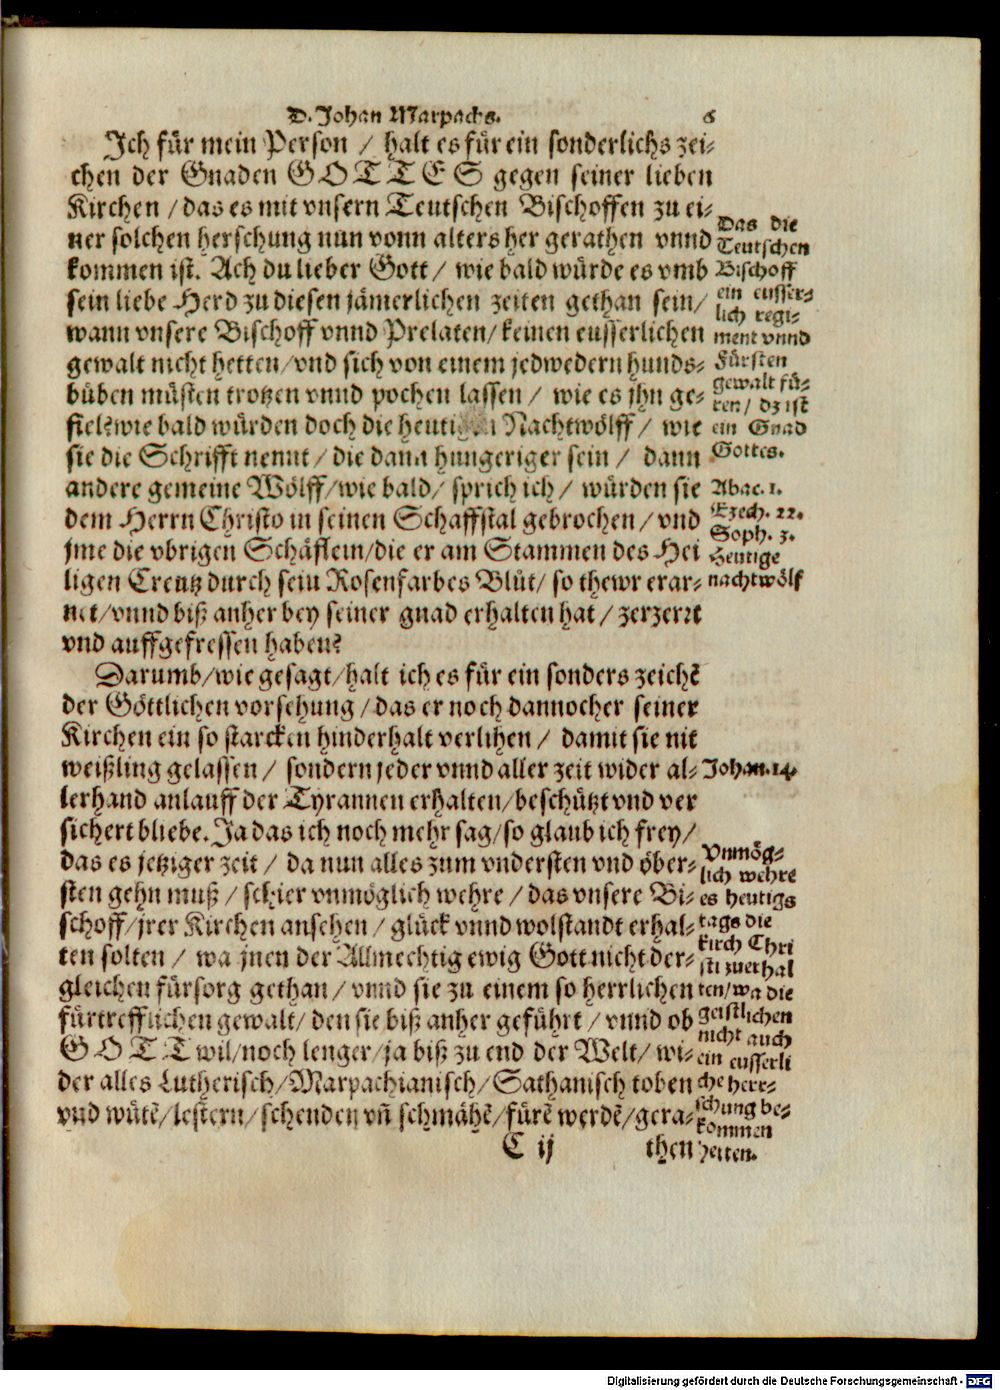 D. Johan Marpachs. 6
Ich für mein Person / halt es für ein sonderlichs zei-
chen der Gnaden GOTTES gegen seiner lieben
Kirchen / das es mit vnsern Teutschen Bischoffen zu ei-
ner solchen herschung nun vonn alters her gerathen vnnd
kommen ist. Ach du lieber Gott / wie bald würde es vmb
sein liebe Herd zu diesen jämerlichen zeiten gethan sein /
wann vnsere Bischoff vnnd Prelaten / keinen eusserlichen
gewalt nicht hetten / vnd sich von einem jedwedern hunds-
büben müsten trotzen vnnd pochen lassen / wie es jhn ge-
fiel? wie bald würden doch die heutigen Nachtwölff / wie
sie die Schrifft nennt / die dann hungeriger sein / dann
andere gemeine Wölff / wie bald / sprich ich / würden sie
dem Herrn Christo in seinen Schaffstal gebrochen / vnd
jme die vbrigen Schäflein / die er am Stammen des Hei
ligen Creutz durch sein Rosenfarbes Blůt / so thewr erar-
net / vnnd biß anher bey seiner gnad erhalten hat / zerzerrt
vnd auffgefressen haben?
Darumb / wie gesagt / halt ich es für ein sonders zeichẽ
der Göttlichen vorsehung / das er noch dannocher seiner
Kirchen ein so starcken hinderhalt verlihen / damit sie nit
weißling gelassen / sondern jeder vnnd aller zeit wider al-
lerhand anlauff der Tyrannen erhalten / beschützt vnd ver
sichert bliebe. Ja das ich noch mehr sag / so glaub ich frey /
das es jetziger zeit / da nun alles zum vndersten vnd öber-
sten gehn muß / schier vnmöglich wehre / das vnsere Bi-
schoff / jrer Kirchen ansehen / glück vnnd wolstandt erhal-
ten solten / wa jnen der Allmechtig ewig Gott nicht der-
gleichen fürsorg gethan / vnnd sie zu einem so herrlichen
fürtrefflichen gewalt / den sie biß anher geführt / vnnd ob
GOTT wil / noch lenger / ja biß zu end der Welt / wi-
der alles Lutherisch / Marpachianisch / Sathanisch toben
vnd wütẽ / lestern / schenden vñ schmähẽ / fürẽ werdẽ / gera-
C ij then
Das die
Teutschen
Bischoff
ein eusser-
lich regi-
ment vnnd
Fürsten
gewalt fü-
ren / dz ist
ein Gnad
Gottes.
Abac. 1.
Ezech. 22.
Soph. 3.
Heutige
nachtwölf
Johan. 14.
Vnmög-
lich wehre
es heutigs
tags die
kirch Chri
sti zuerhal
ten / wa die
geistlichen
nicht auch
ein eusserli
che herr-
schung be-
kommen
hetten.
Digitalisierung gefördert durch die Deutsche Forschungsgemeinschaft - DFG